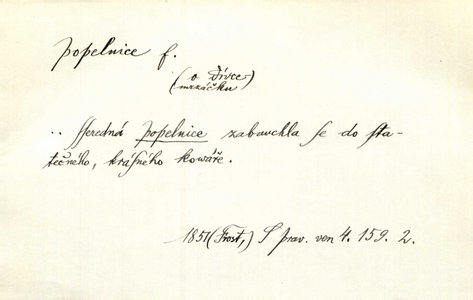 popelnice f.
(o dívce
mrzáčku)
.. ſſeredná popelnice zabauchla ſe do ſta-
tečného, kráſného kowáře.
1851 (Froſt,) S prav. ven 4. 159. 2.